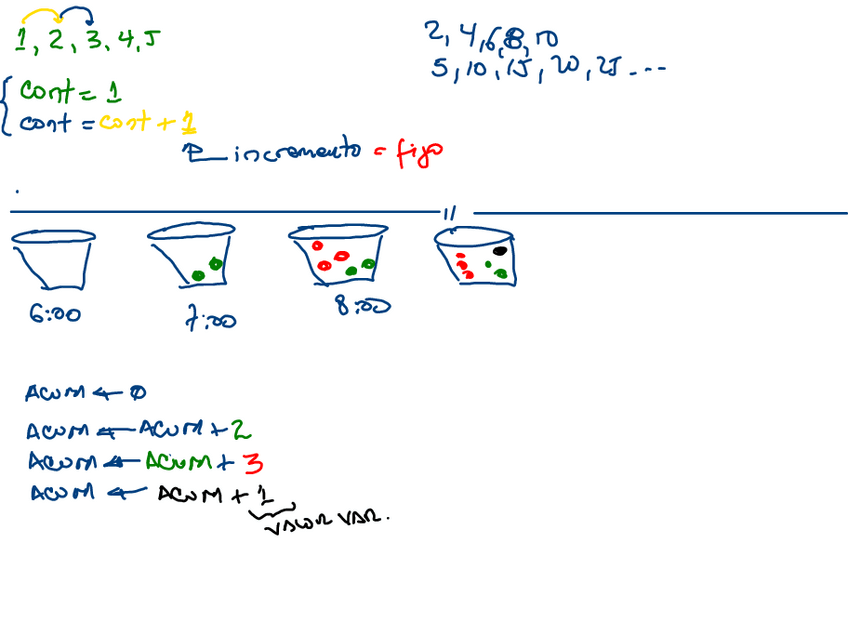 1, 2, 3, 4, 5
2, 4, 6, 8, 10
5, 10, 15, 20, 25 ...
cont = 1
cont = cont + 1
incremento = fijo
6:00
7:00
8:00
ACUM ← 0
ACUM ← ACUM + 2
ACUM ← ACUM + 3
ACUM ← ACUM + 1
VALOR VAR.